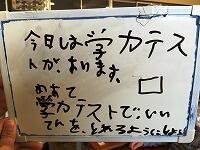 今日は学力テス
トが、あります。
めあて
学力テストで、いい
てんを、とれるようにしよう